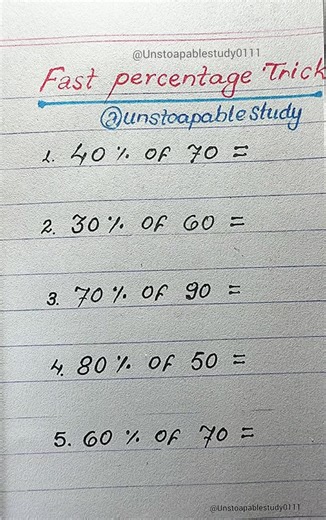 @Unstoapablestudy0111
Fast percentage Trick
@unstoapablestudy
1. 40% of 70 =
2. 30% of 60 =
3. 70% of 90 =
4. 80% of 50 =
5. 60% of 70 =
@Unstoapablestudy0111